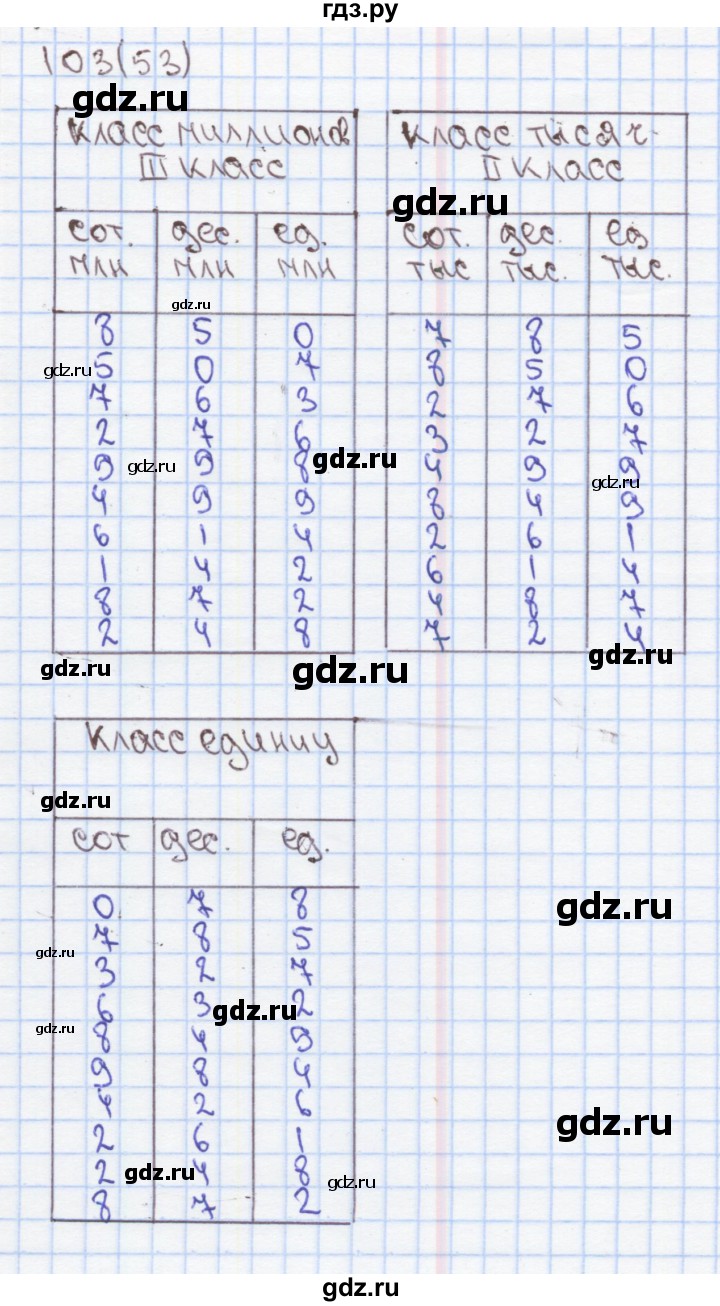 гдз.ру
103(53)
gdz.ru
класс миллионов класс тысяч
III класс II класс
gdz.ru
сот. дес. ед. сот. дес. ед
млн млн млн тыс тыс. тыс.
gdz.ru
8 5 0 7 8 5
gdz.ru
5 0 7 8 5 0
7 6 3 2 7 6
2 7 6 3 2 7
gdz.ru gdz.ru
9 9 8 4 9 9
gdz.ru
4 9 9 8 4 9
6 1 4 2 6 1
1 4 2 6 1 4
8 7 2 4 8 7
2 4 8 7 2 4
gdz.ru gdz.ru gdz.ru
Класс единиц
gdz.ru
сот дес. ед.
0 7 8
gdz.ru
7 8 5
gdz.ru
3 2 7
6 3 2
gdz.ru
gdz.ru
8 4 9
9 8 4
4 2 6
gdz.ru
2 6 1
2 4 8
gdz.ru gdz.ru
8 7 2
gdz.ru